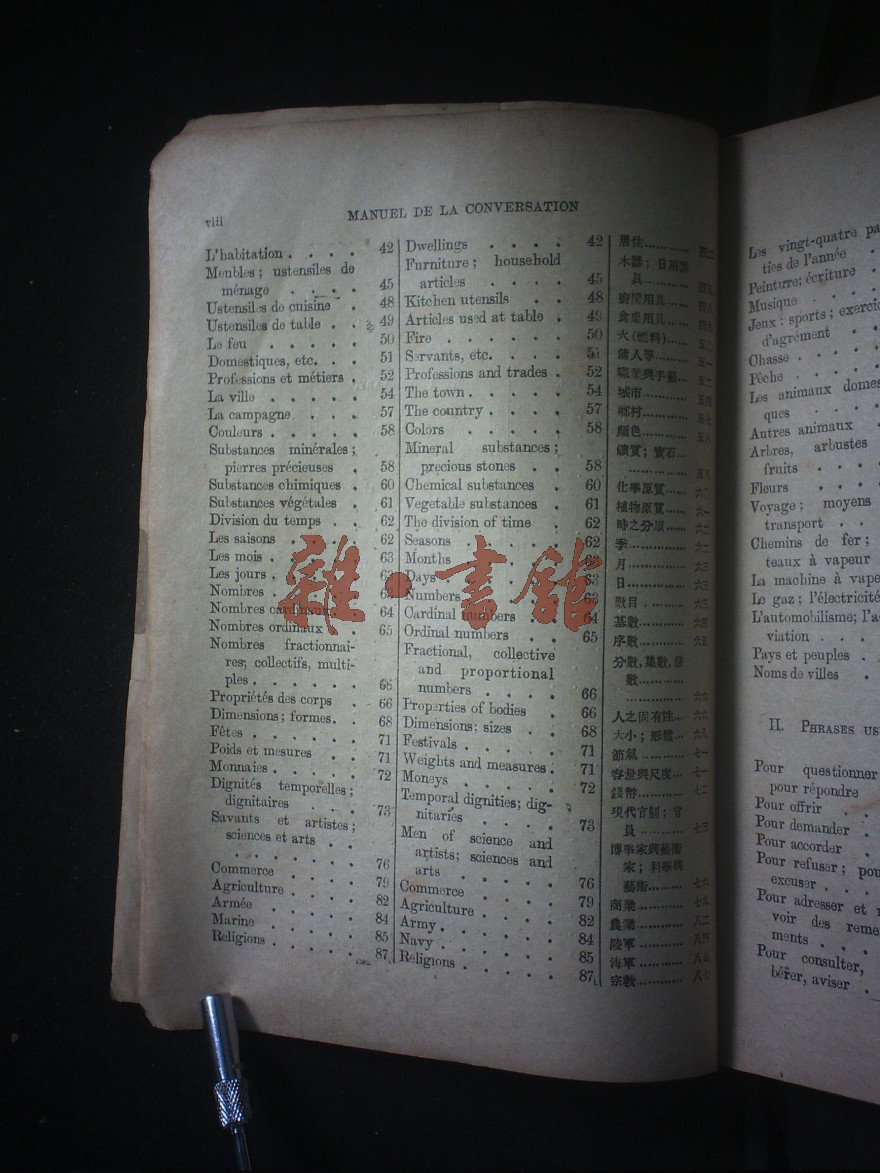 viii
MANUEL DE LA CONVERSATION
L'habitation . . . . 42
Meubles; ustensiles de
ménage . . . . 45
Ustensiles de cuisine . 48
Ustensiles de table . . 49
Le feu . . . . . 50
Domestiques, etc. . . 51
Professions et métiers . 52
La ville . . . . . 54
La campagne . . . 57
Couleurs . . . . . 58
Substances minérales;
pierres précieuses . 58
Substances chimiques . 60
Substances végétales . 61
Division du temps . . 62
Les saisons . . . . 62
Les mois . . . . . 63
Les jours . . . . . 63
Nombres . . . . .
Nombres cardinaux . 64
Nombres ordinaux . . 65
Nombres fractionnai-
res, collectifs, multi-
ples . . . . . . 66
Propriétés des corps . 66
Dimensions; formes. . 68
Fêtes . . . . . . 71
Poids et mesures . . 71
Monnaies . . . . . 72
Dignités temporelles;
dignitaires . . . 73
Savants et artistes;
sciences et arts . .
. . . . . . . 76
Commerce . . . . 79
Agriculture . . . . 82
Armée . . . . . 84
Marine . . . . . 85
Religions . . . . . 87
Dwellings . . . . 42
Furniture; household
articles . . . . 45
Kitchen utensils . . 48
Articles used at table . 49
Fire . . . . . . 50
Servants, etc. . . . 51
Professions and trades . 52
The town . . . . . 54
The country . . . . 57
Colors . . . . . 58
Mineral substances;
precious stones . . 58
Chemical substances . 60
Vegetable substances . 61
The division of time . 62
Seasons . . . . . 62
Months . . . . . 63
Days . . . . . 63
Numbers . . . . . 63
Cardinal numbers . . 64
Ordinal numbers . . 65
Fractional, collective
and proportional
numbers . . . . 66
Properties of bodies . 66
Dimensions; sizes . . 68
Festivals . . . . . 71
Weights and measures . 71
Moneys . . . . . 72
Temporal dignities; dig-
nitaries . . . . 73
Men of science and
artists; sciences and
arts . . . . . 76
Commerce . . . . 79
Agriculture . . . . 82
Army . . . . . . 84
Navy . . . . . . 85
Religions . . . . . 87
居住………四二
木器；日用器
具………四五
廚房用具……四八
食桌用具……四九
火(燃料)……五〇
傭人等………五一
職業與手藝…五二
城市…………五四
鄉村…………五七
顏色…………五八
鑛質；寶石…
…………五八
化學原質……六〇
植物原質……六一
時之分項……六二
季……………六二
月……………六三
日……………六三
數目…………六三
基數…………六四
序數…………六五
分數，集數，倍
數………
…………六六
人之固有性…六六
大小；形體…六八
節氣…………七一
容量與尺度…七一
錢幣…………七二
現代官制；官
員………七三
博學家與藝術
家；科學與
藝術………七六
商業…………七九
農業…………八二
陸軍…………八四
海軍…………八五
宗教…………八七
Les vingt-quatre par
ties de l'année .
Peinture; écriture .
Musique . . .
Jeux; sports; exerci
d'agrément . .
Chasse . . . .
Pêche . . . .
Les animaux domes
ques . . .
Autres animaux .
Arbres, arbustes
fruits . . . .
Fleurs . . . .
Voyage; moyens
transport . .
Chemins de fer;
teaux à vapeur
La machine à vape
Le gaz; l'électricité
L'automobilisme; l'a
viation . . .
Pays et peuples .
Noms de villes .
II. PHRASES US
Pour questionner
pour répondre
Pour offrir . .
Pour demander .
Pour accorder .
Pour refuser; pou
excuser . . .
Pour adresser et r
voir des reme
ments . . .
Pour consulter,
bérer, aviser .
雜·書館